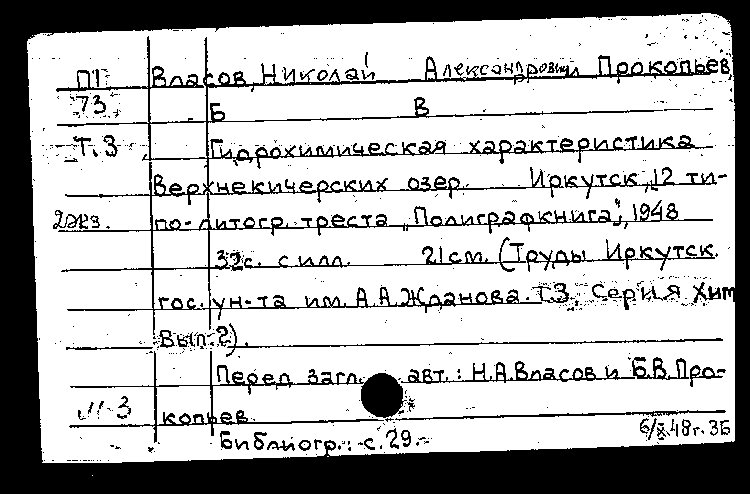 П1 Власов, Николай Александрович Прокопьев,
73 Б В
Т.3 Гидрохимическая характеристика
Верхнекичерских озер. Иркутск, 12 ти-
2экз. по-литогр. треста „Полиграфкнига", 1948
32с. с илл. 21см. (Труды Иркутск.
гос. ун-та им. А.А.Жданова. Т.3, Серия Хим
Вып. 2).
Перед загл. авт.: Н.А.Власов и Б.В.Про-
М-3 копьев.
Библиогр.: с.29. 6/X 48г. ЗБ